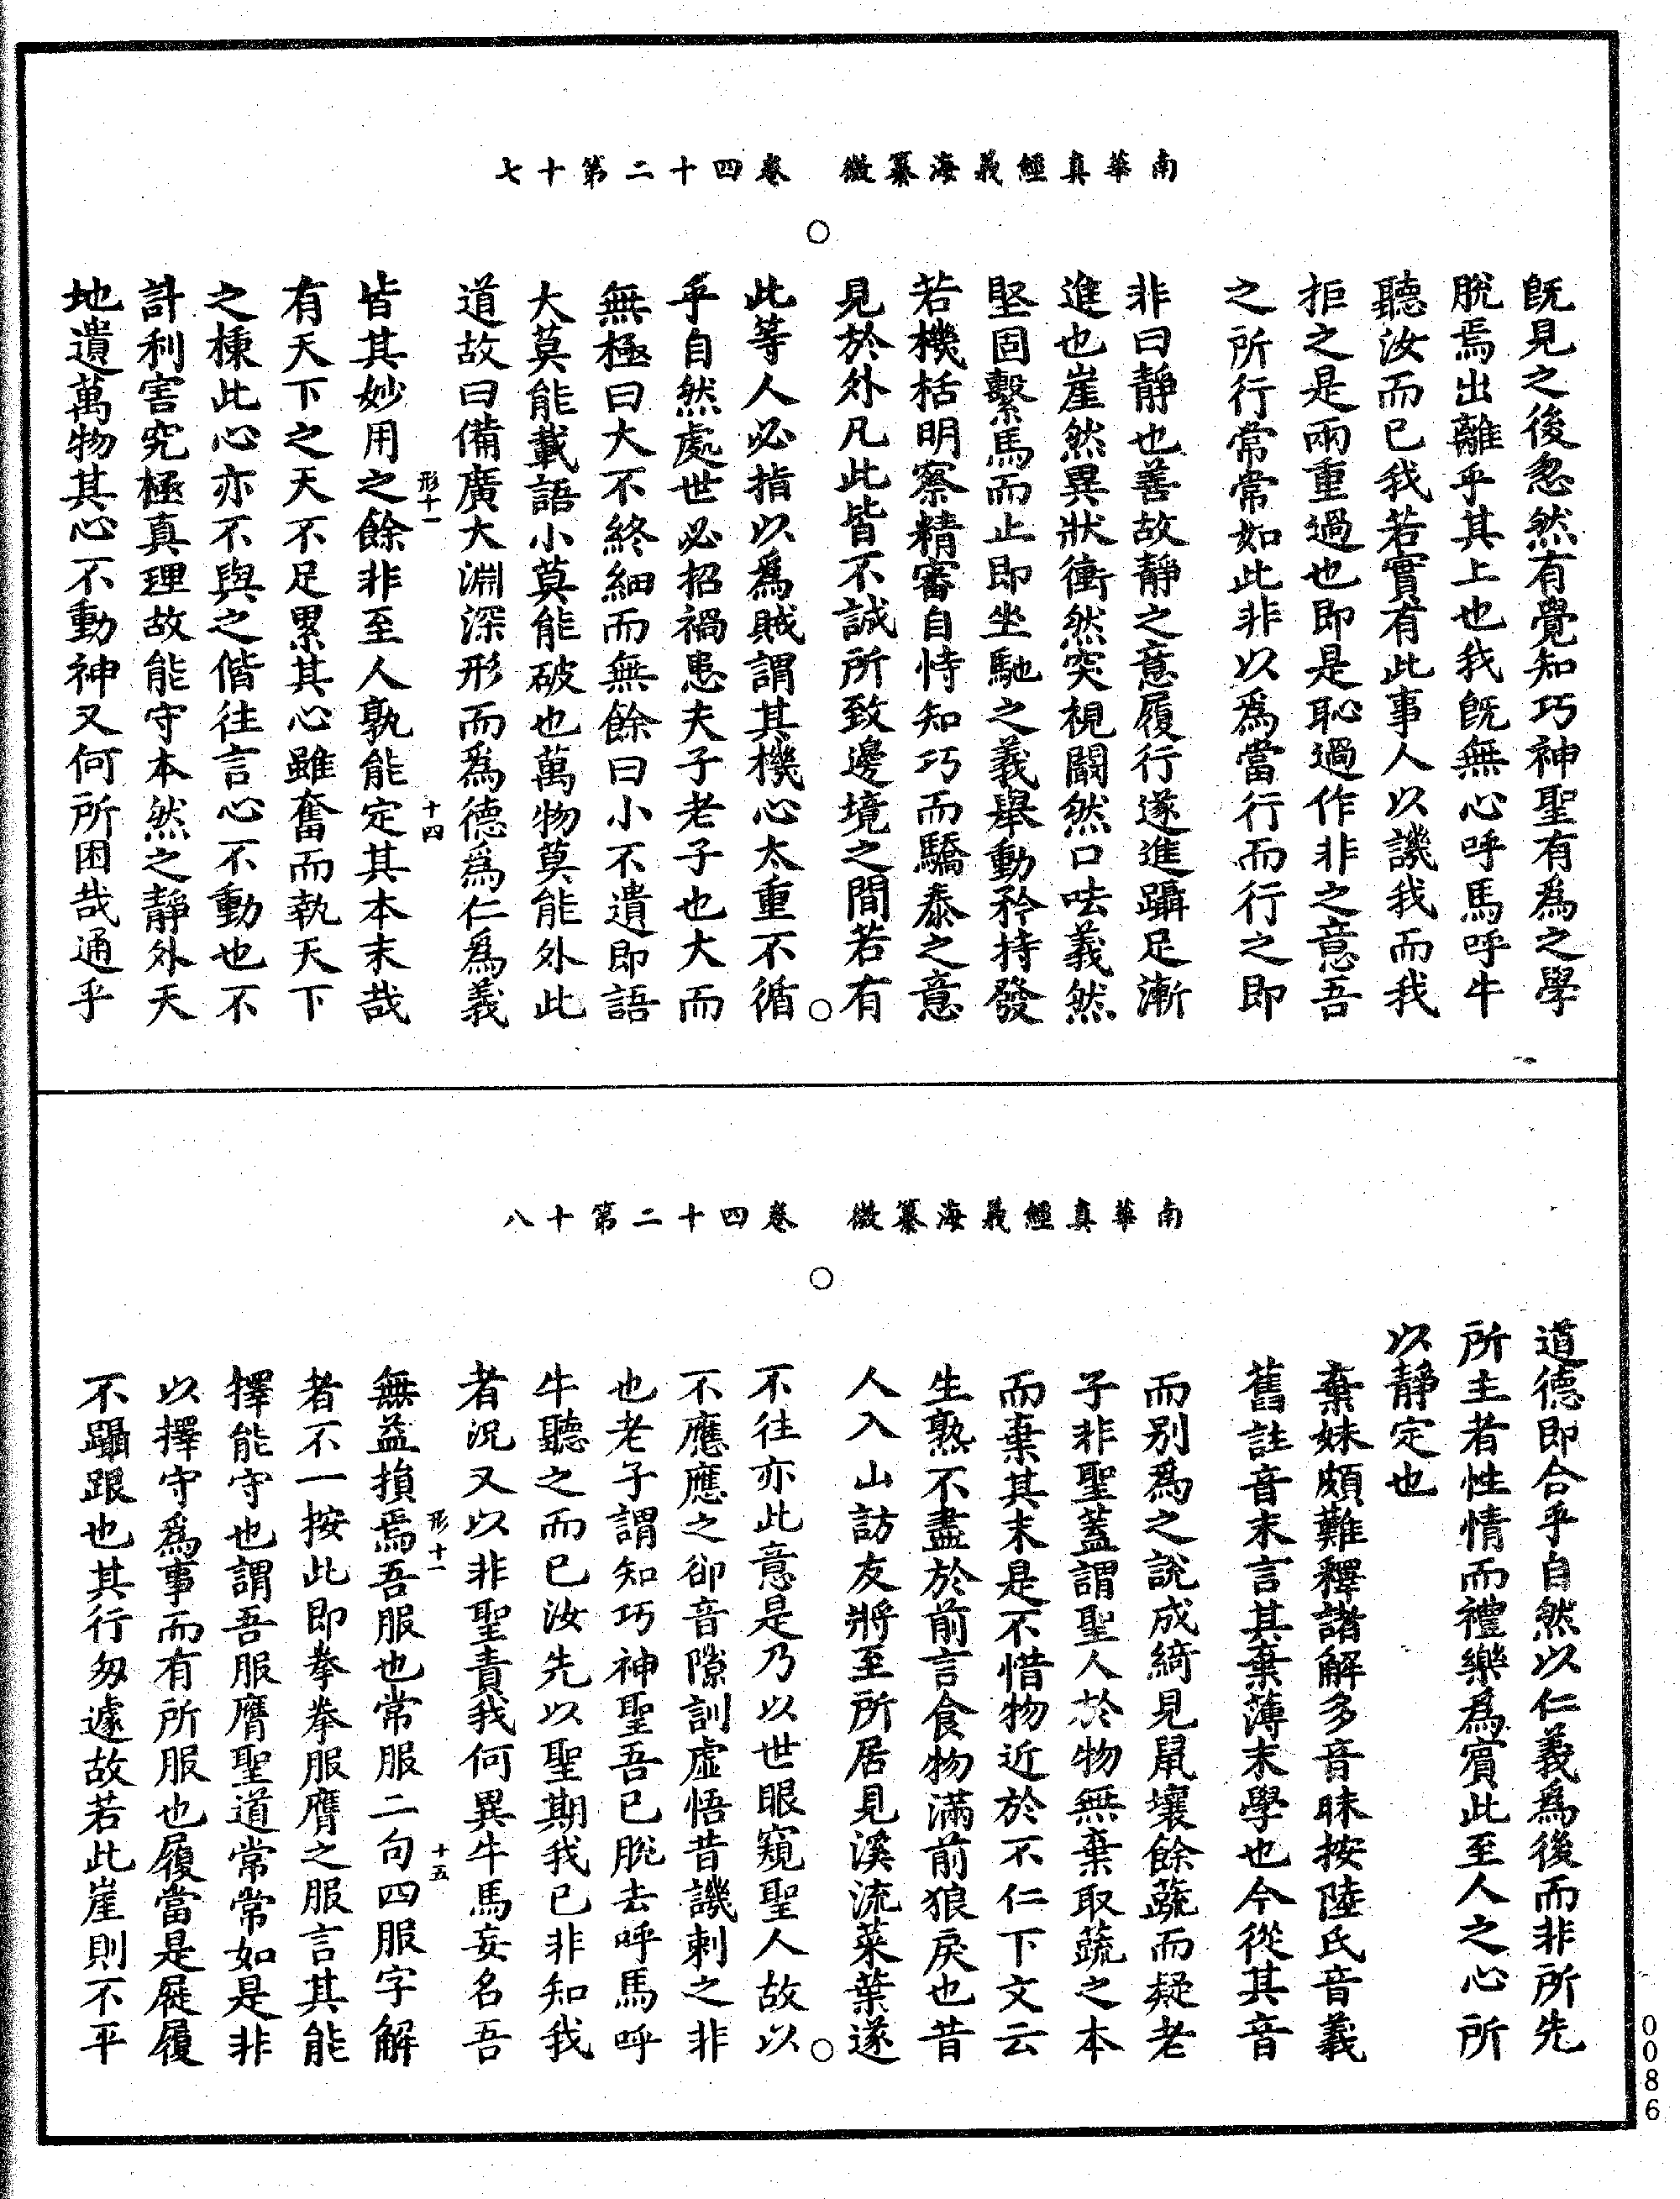 南華真經義海纂微　卷四十二第十七
既見之後忽然有覺知巧神聖有為之學
脫焉出離乎其上也我既無心呼馬呼牛
聽汝而已我若實有此事人以譏我而我
拒之是兩重過也即是恥過作非之意吾
之所行常常如此非以為當行而行之即
非曰靜也善故靜之意履行遂進躡足漸
進也崖然異狀衝然突視闞然口呿義然
堅固繫馬而止即坐馳之義舉動矜持發
若機栝明察精審自恃知巧而驕泰之意
見於外凡此皆不誠所致邊境之間若有
此等人必指以為賊謂其機心太重不循
乎自然處世必招禍患夫子老子也大而
無極曰大不終細而無餘曰小不遺即語
大莫能載語小莫能破也萬物莫能外此
道故曰備廣大淵深形而為德為仁為義
形十一　十四
皆其妙用之餘非至人孰能定其本末哉
有天下之天不足累其心雖奮而執天下
之棅此心亦不與之偕往言心不動也不
計利害究極真理故能守本然之靜外天
地遺萬物其心不動神又何所困哉通乎
南華真經義海纂微　卷四十二第十八
道德即合乎自然以仁義為後而非所先
所主者性情而禮樂為賓此至人之心所
以靜定也
棄妹頗難釋諸解多音昧按陸氏音義
舊註音末言其棄薄末學也今從其音
而别為之說成綺見鼠壤餘蔬而疑老
子非聖蓋謂聖人於物無棄取蔬之本
而棄其末是不惜物近於不仁下文云
生熟不盡於前言食物滿前狼戾也昔
人入山訪友將至所居見溪流菜葉遂
不往亦此意是乃以世眼窺聖人故以
不應應之卻音隙訓虛悟昔譏刺之非
也老子謂知巧神聖吾已脫去呼馬呼
牛聽之而已汝先以聖期我已非知我
者況又以非聖責我何異牛馬妄名吾
形十一　十五
無益損焉吾服也常服二句四服字解
者不一按此即拳拳服膺之服言其能
擇能守也謂吾服膺聖道常常如是非
以擇守為事而有所服也履當是屣履
不躡跟也其行匆遽故若此崖則不平
0086